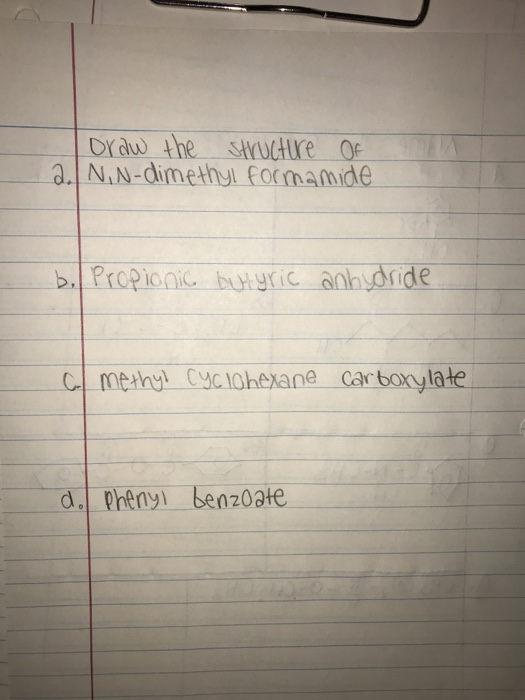 Draw the structure of
a. N,N-dimethyl formamide
b. Propionic butyric anhydride
c. methyl cyclohexane carboxylate
d. phenyl benzoate